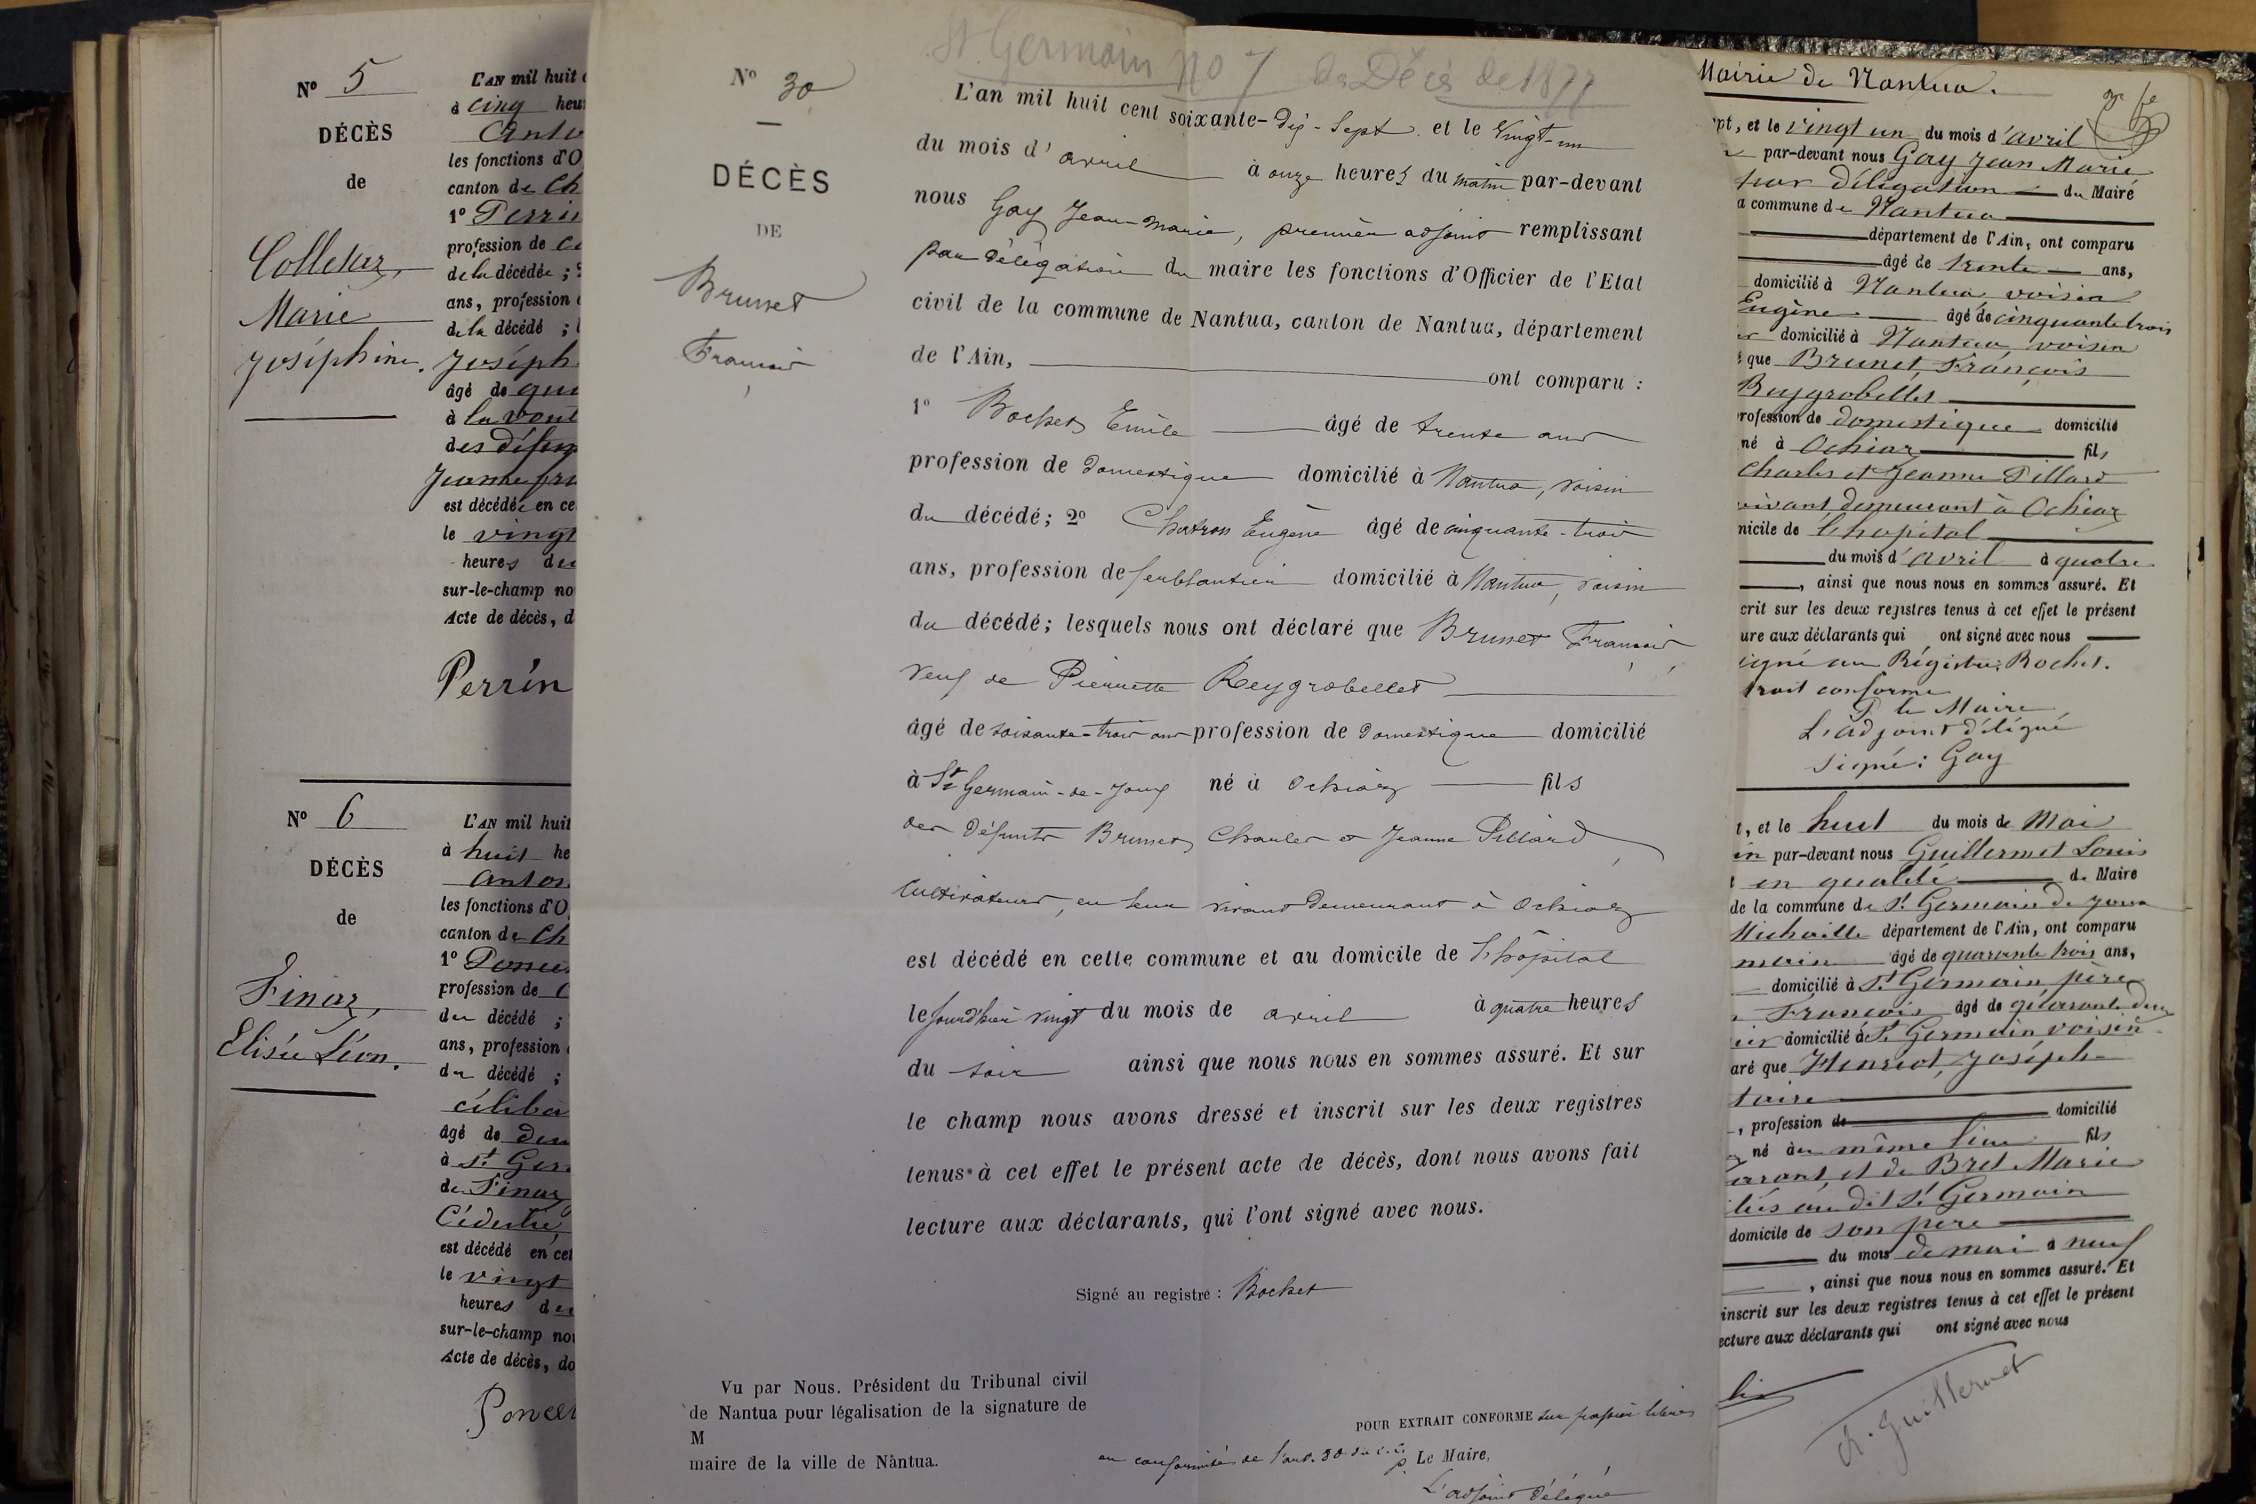 Nº 5
DÉCÈS
de
Colletaz,
Marie
Joséphine.
L'AN mil huit
à cinq heu
Anto
les fonctions d'O
canton de Ch
1º Perrin
profession de
de la décédée ;
ans, profession
de la décédé ;
Joséph
âgé de
à la
des défun
Jeanne
est décédée en ce
le vingt
heures du
sur-le-champ no
Acte de décès, d
Perrin
Nº 6
DÉCÈS
de
Finaz,
Elisée Léon.
L'AN mil huit
à huit he
Anto
les fonctions d'O
canton de Ch
1º Ponce
profession de
du décédé ;
ans, profession
du décédé ;
céliba
âgé de deu
à St Ger
de Finaz
est décédé en cet
le vingt
heures du
sur-le-champ no
Acte de décès, do
Poncet
St. Germain No 7 des Décès de 1877
Nº 30
DÉCÈS
DE
Brunet
François
L'an mil huit cent soixante-dix-sept et le vingt-un
du mois d'avril à onze heures du matin par-devant
nous Gay Jean-Marie, premier adjoint remplissant
par délégation du maire les fonctions d'Officier de l'Etat
civil de la commune de Nantua, canton de Nantua, département
de l'Ain, ont comparu :
1º Bochet Emile âgé de trente ans
profession de domestique domicilié à Nantua, voisin
du décédé; 2º Chatron Eugène âgé de cinquante-trois
ans, profession de ferblantier domicilié à Nantua, voisin
du décédé; lesquels nous ont déclaré que Brunet François
veuf de Pierrette Reygrobellet
âgé de soixante-trois ans profession de domestique domicilié
à St Germain-de-Joux né à Ochiaz fils
des défunts Brunet Charles et Jeanne Pillard
cultivateurs, en leur vivant demeurant à Ochiaz
est décédé en cette commune et au domicile de l'hôpital
le jourd'hier vingt du mois de avril à quatre heures
du soir ainsi que nous nous en sommes assuré. Et sur
le champ nous avons dressé et inscrit sur les deux registres
tenus à cet effet le présent acte de décès, dont nous avons fait
lecture aux déclarants, qui l'ont signé avec nous.
Signé au registre : Bochet
Vu par Nous. Président du Tribunal civil
de Nantua pour légalisation de la signature de
M
maire de la ville de Nantua.
POUR EXTRAIT CONFORME sur papier libre
en conformité de l'art. 80 du c.c.
p. Le Maire,
L'adjoint délégué
Mairie de Nantua.
pt, et le vingt un du mois d'avril
par-devant nous Gay Jean Marie
par délégation du Maire
a commune de Nantua
département de l'Ain, ont comparu
âgé de trente ans,
domicilié à Nantua voisin
Eugène âgé de cinquante trois
domicilié à Nantua voisin
que Brunet, François
Reygrobellet
profession de domestique domicilié
né à Ochiaz fils
Charles et Jeanne Pillard
vivant demeurant à Ochiaz
micile de l'hopital
du mois d'avril à quatre
, ainsi que nous nous en sommes assuré. Et
crit sur les deux registres tenus à cet effet le présent
ure aux déclarants qui ont signé avec nous
signé au Régistre: Rochet.
trait conforme
P. le Maire
L'adjoint délégué
signé: Gay
t, et le huit du mois de Mai
in par-devant nous Guillermet Louis
en qualité de Maire
de la commune de St Germain de Joux
Michaille département de l'Ain, ont comparu
main âgé de quarante trois ans,
domicilié à St Germain père
François âgé de quarante deux
domicilié à St Germain voisin
aré que Henriot, Joséph
taire
, profession de domicilié
né au même lieu fils
et de Bret Marie
liés au dit St Germain
domicile de son père
du mois de mai à neuf
, ainsi que nous nous en sommes assuré. Et
inscrit sur les deux registres tenus à cet effet le présent
ecture aux déclarants qui ont signé avec nous
Guillermet